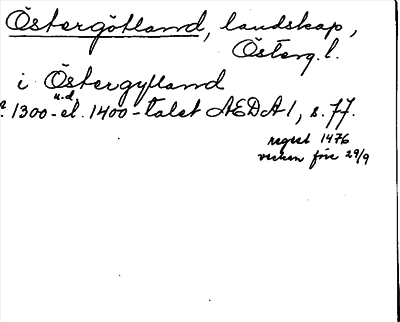 Östergötland, landskap,
Österg.l.
i Östergylland
u.d.
? 1300- el. 1400-talet AEDA1, s. 77.
regest 1476
veckan före 29/9